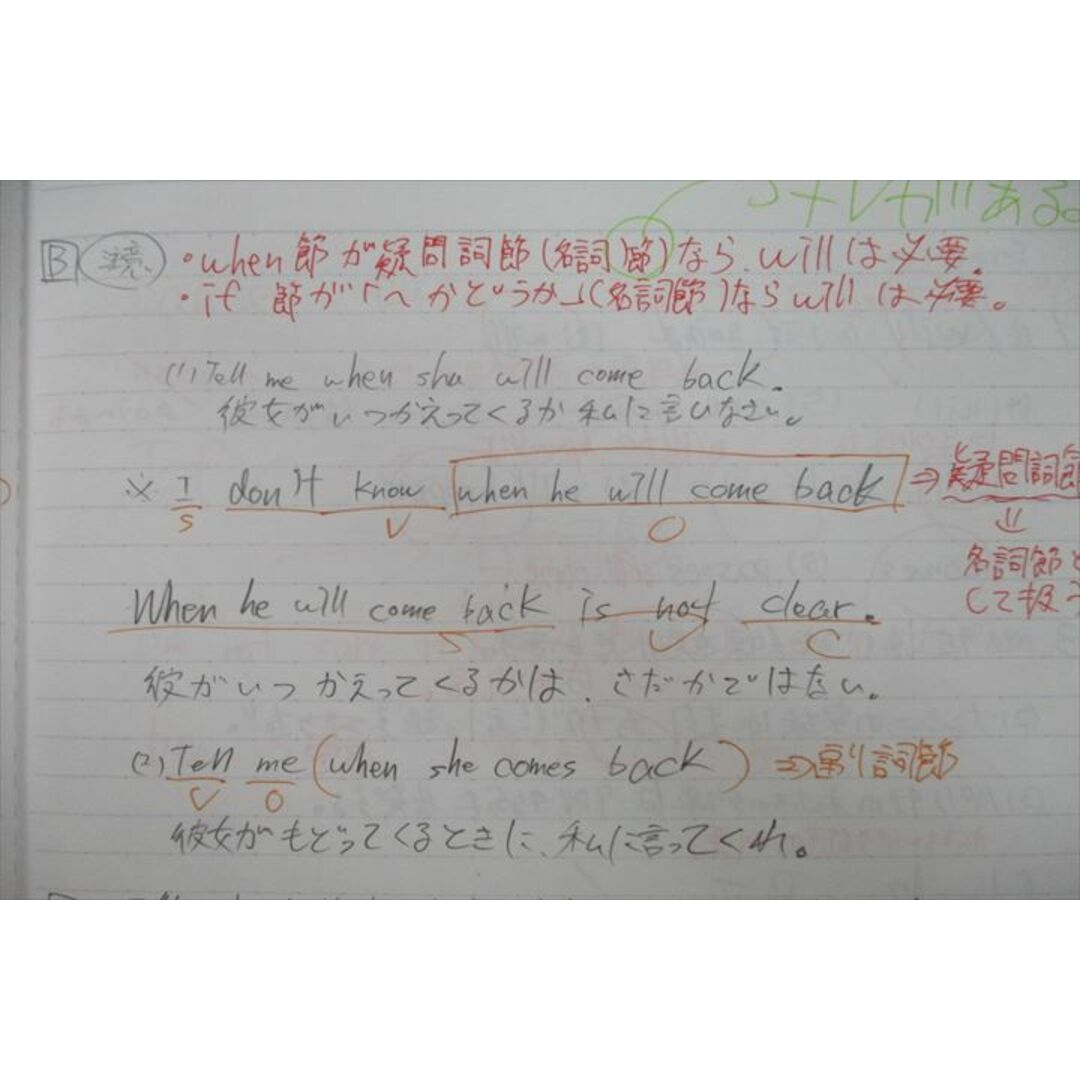 S+Vが川ある。
B 注意. ・when節が疑問詞節(名詞節)なら.willは必要.
・if 節が「〜かどうか」(名詞節)なら will は必要。
(1) Tell me when she will come back.
彼女がいつかえってくるか私に言いなさい。
※ I don't know when he will come back ⇒ 疑問詞節
S V O
名詞節と
して扱う
When he will come back is not clear.
S V C
彼がいつかえってくるかは、さだかではない。
(2) Tell me (when she comes back) ⇒ 副詞節
V O
彼女がもどってくるときに、私に言ってくれ。